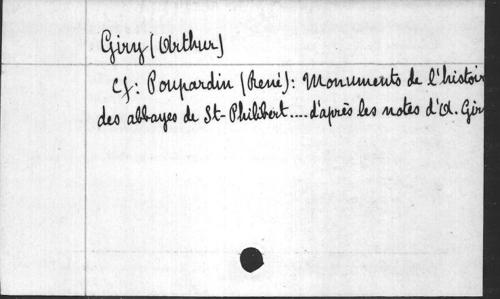 Giry (Arthur)
Cf: Poupardin (René): Monuments de l'histoir
des abbayes de St-Philibert....d'après les notes d'A. Gir